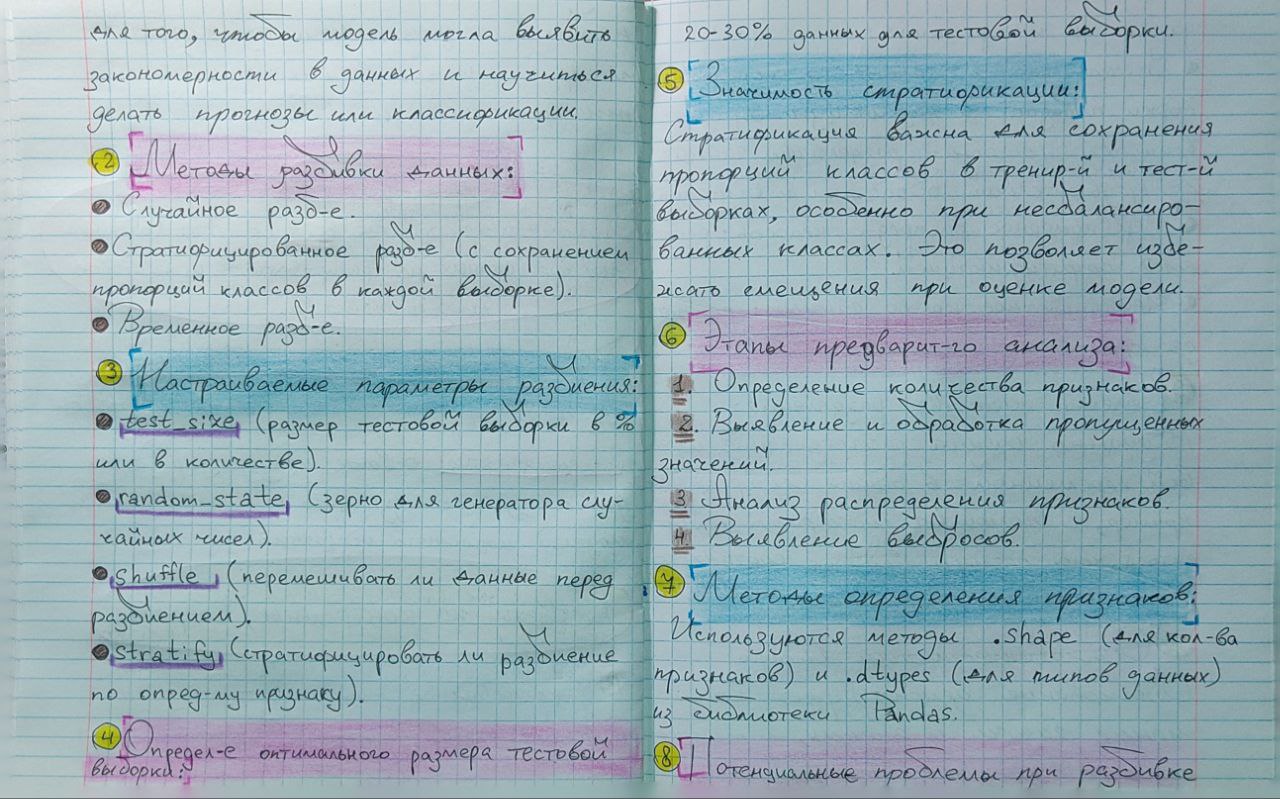 для того, чтобы модель могла выявить
закономерности в данных и научиться
делать прогнозы или классификации.
2 Методы разбивки данных:
• Случайное разб-е.
• Стратифицированное разб-е (с сохранением
пропорций классов в каждой выборке).
• Временное разб-е.
3 Настраиваемые параметры разбиения:
• test_size (размер тестовой выборки в %
или в количестве).
• random_state (зерно для генератора слу-
чайных чисел).
• shuffle (перемешивать ли данные перед
разбиением).
• stratify (стратифицировать ли разбиение
по опред-му признаку).
4 Определ-е оптимального размера тестовой
выборки:
20-30% данных для тестовой выборки.
5 Значимость стратификации:
Стратификация важна для сохранения
пропорций классов в тренир-й и тест-й
выборках, особенно при несбалансиро-
ванных классах. Это позволяет избе-
жать смещения при оценке модели.
6 Этапы предварит-го анализа:
1. Определение количества признаков.
2. Выявление и обработка пропущенных
значений.
3. Анализ распределения признаков.
4. Выявление выбросов.
7 Методы определения признаков:
Используются методы .shape (для кол-ва
признаков) и .dtypes (для типов данных)
из библиотеки Pandas.
8 Потенциальные проблемы при разбивке